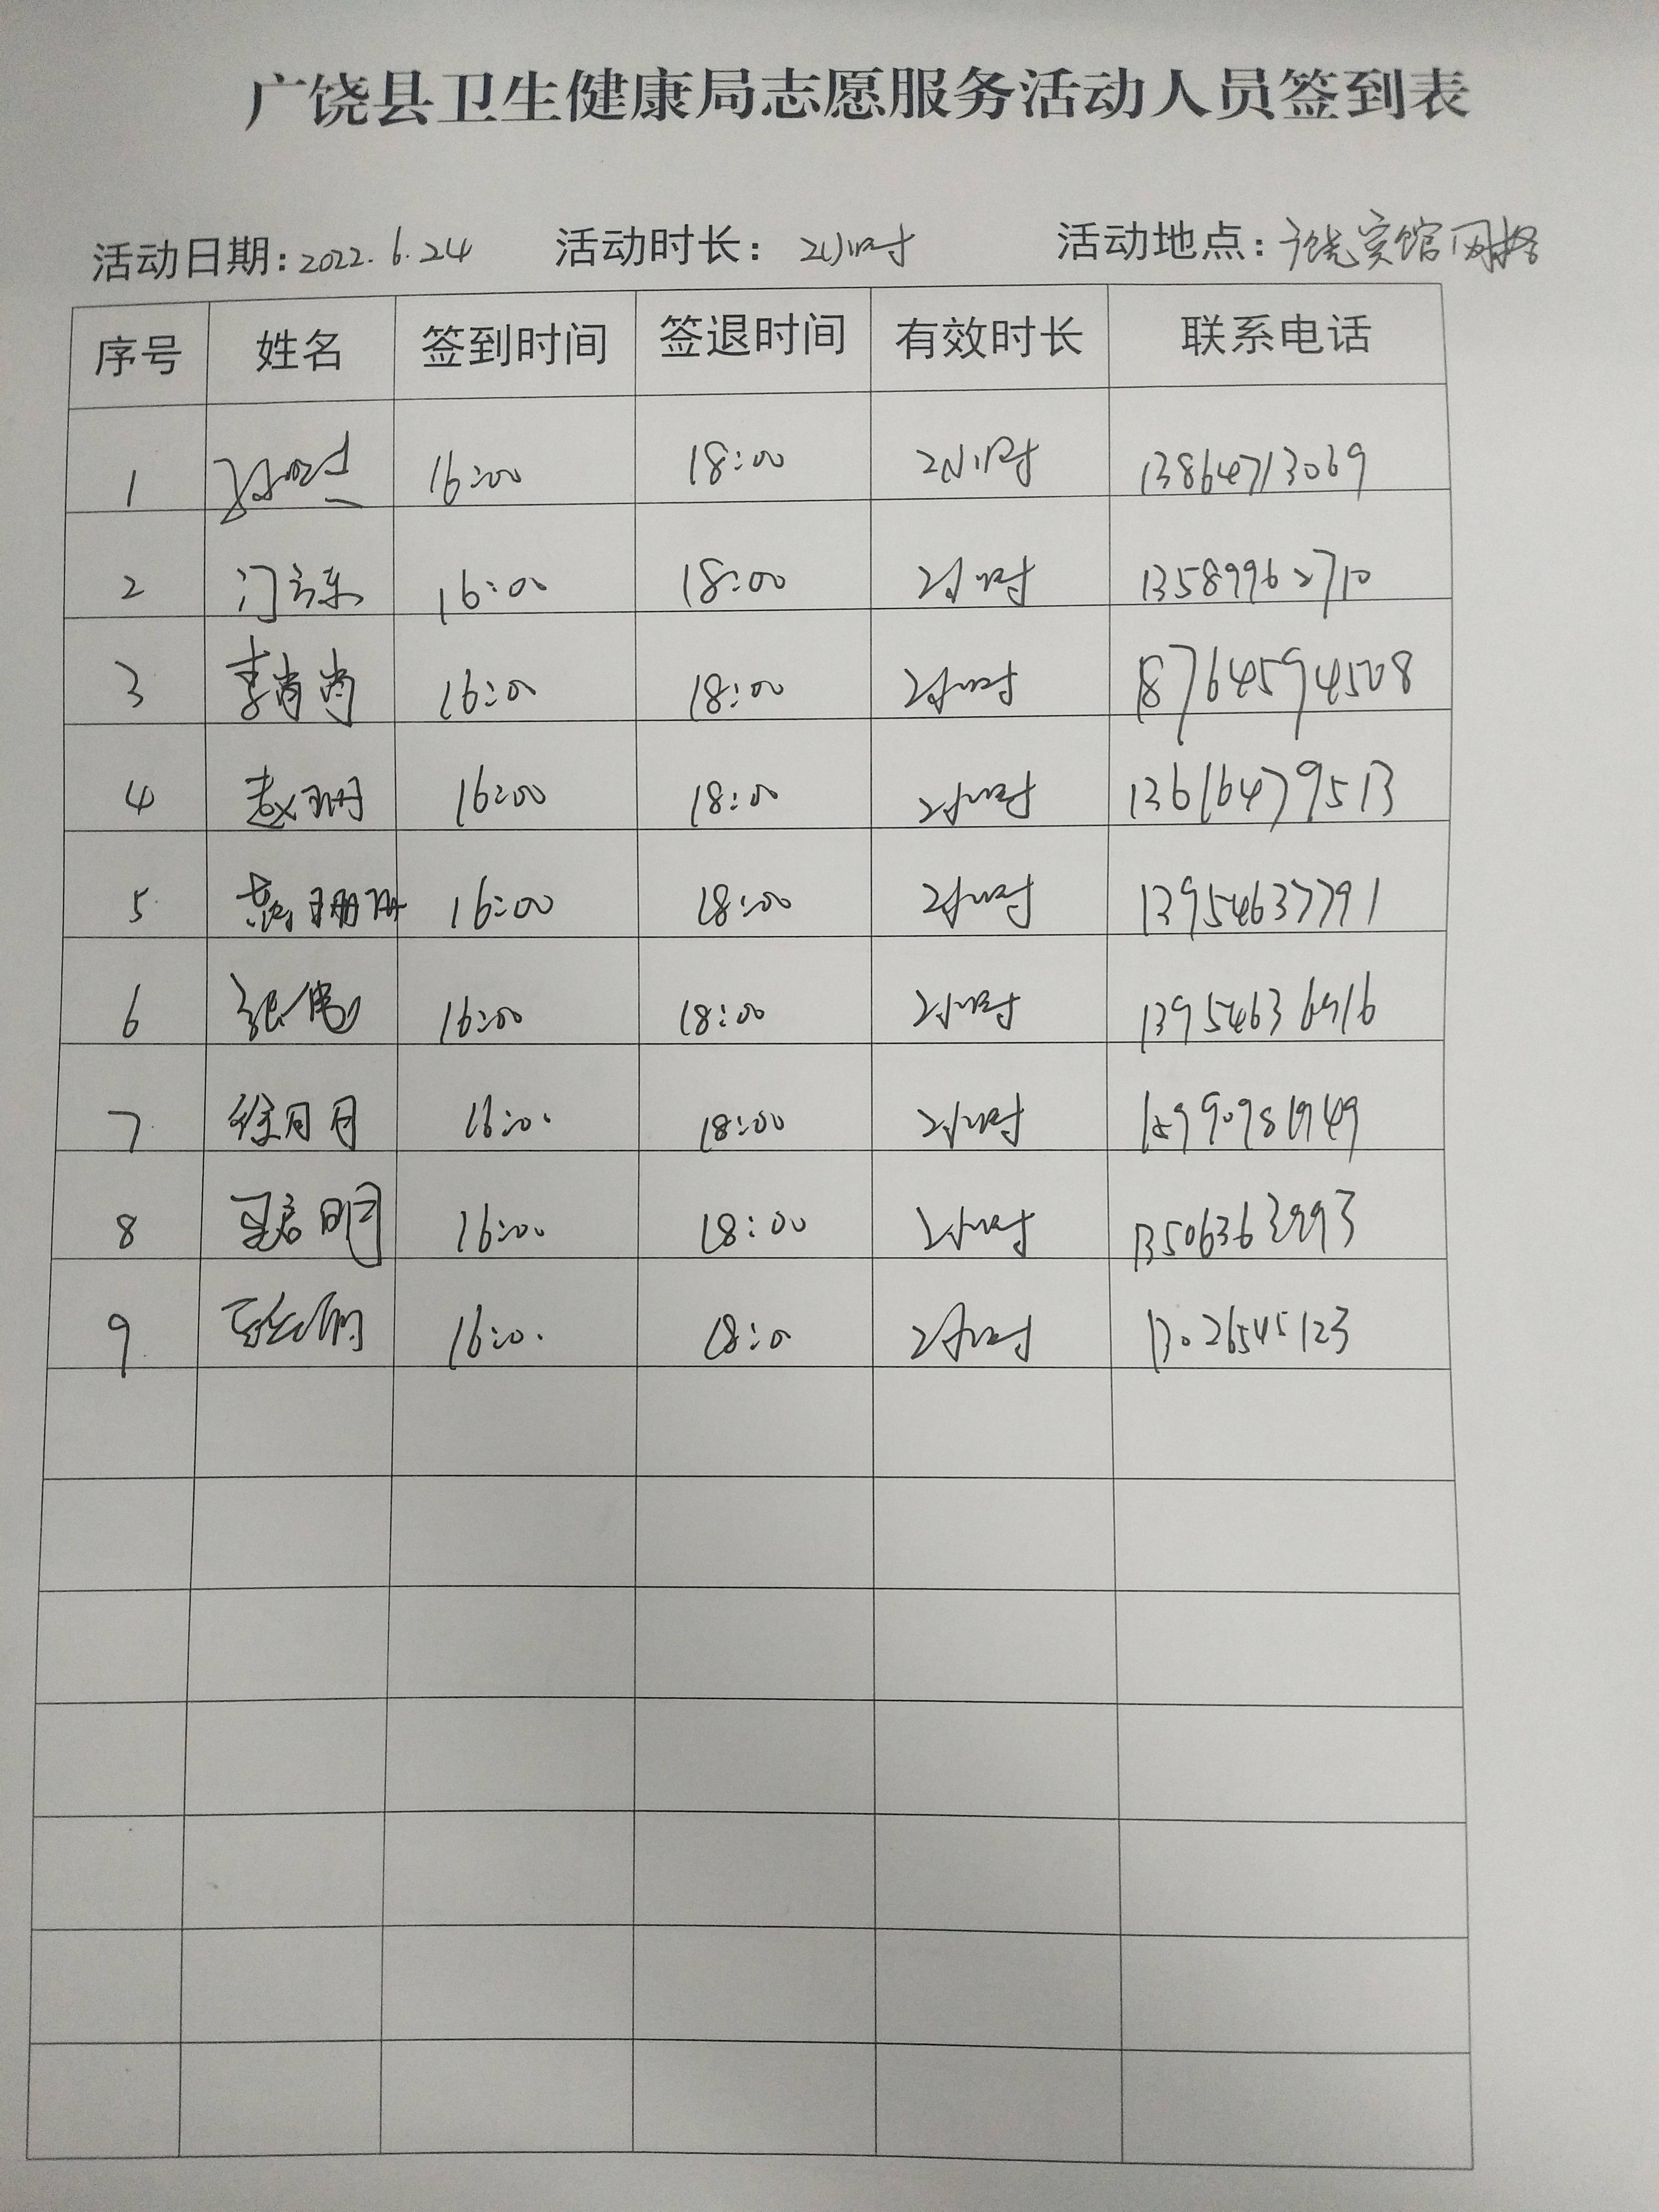 广饶县卫生健康局志愿服务活动人员签到表
活动日期:2022.6.24 活动时长:2小时 活动地点:广饶宾馆网格
序号 姓名 签到时间 签退时间 有效时长 联系电话
1 16:00 18:00 2小时 13864713069
2 16:00 18:00 2小时 13589962710
3 李肖肖 16:00 18:00 2小时 18764594508
4 赵珊 16:00 18:00 2小时 13616479513
5 黄珊珊 16:00 18:00 2小时 13954637791
6 张俊 16:00 18:00 2小时 13954636916
7 徐月月 16:00 18:00 2小时
8 王君明 16:00 18:00 2小时 13506363993
9 16:00 18:00 2小时 13026545123